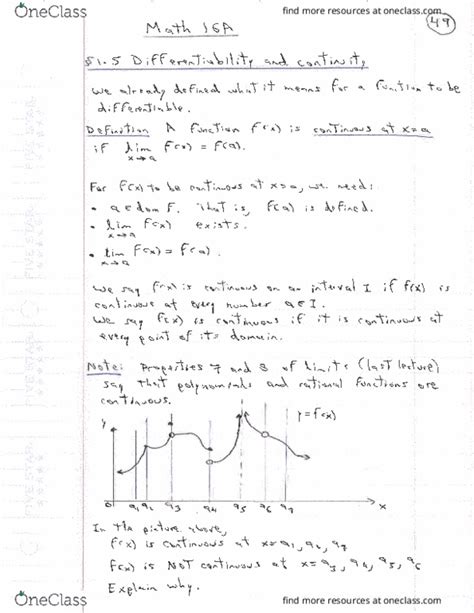 OneClass
find more resources at oneclass.com
find more resources at oneclass.com
49
Math 16A
§1.5 Differentiability and continuity
We already defined what it means for a function to be
differentiable.
Definition A function f(x) is continuous at x=a
if lim f(x) = f(a).
x→a
For f(x) to be continuous at x=a, we need:
• a ∈ dom f. That is, f(a) is defined.
• lim f(x) exists.
x→a
• lim f(x) = f(a).
x→a
We say f(x) is continuous on an interval I if f(x) is
continuous at every number a∈I.
We say f(x) is continuous if it is continuous at
every point of its domain.
Note: Properties 7 and 8 of limits (last lecture)
say that polynomials and rational functions are
continuous.
y
y=f(x)
0 a1 a2 a3 a4 a5 a6 a7 x
In the picture above,
f(x) is continuous at x=a1, a2, a7
f(x) is NOT continuous at x=a3, a4, a5, a6
Explain why.
OneClass
find more resources at oneclass.com